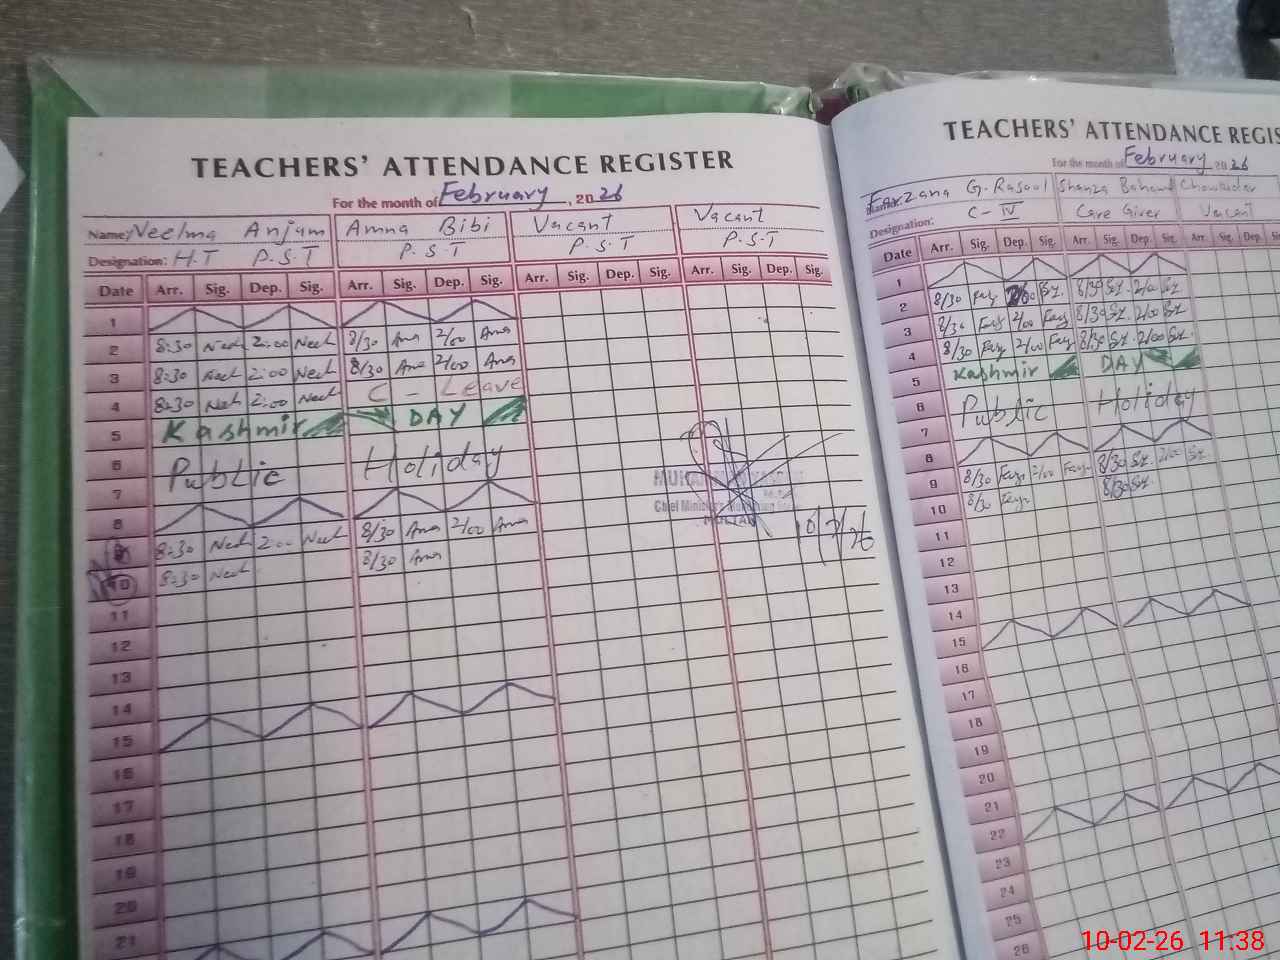 TEACHERS' ATTENDANCE REGISTER
For the month of February, 2026
Name: Neelma Anjum Amna Bibi Vacant Vacant
Designation: H.T P.S.T P.S.T P.S.T P.S.T
Date Arr. Sig. Dep. Sig. Arr. Sig. Dep. Sig. Arr. Sig. Dep. Sig. Arr. Sig. Dep. Sig.
1
2 8:30 2:00 8/30 2/00
3 8:30 2:00 8/30 2/00
4 8:30 2:00 C - Leave
5 Kashmir DAY
6 Public Holiday
7
8
9 8:30 8/30 2/00
10 8:30 8/30
11
12
13
14
15
16
17
18
19
20
21
Chief Minister's Monitoring
10/2/26
TEACHERS' ATTENDANCE REGIS
For the month of February 2026
Farzana G. Rasool Shanza Chowkidar
Designation: C-IV Care Giver Vacant
Date Arr. Sig. Dep. Sig. Arr. Sig. Dep. Sig. Arr. Sig. Dep.
1
2 8/30 8/30 2/00
3 8/30 2/00 8/30 2/00
4 8/30 2/00 8/30 2/00
5 Kashmir DAY
6 Public Holiday
7
8
9 8/30 2/00 8/30 2/00
10 8/30 8/30
11
12
13
14
15
16
17
18
19
20
21
22
23
24
25
26
10-02-26 11:38